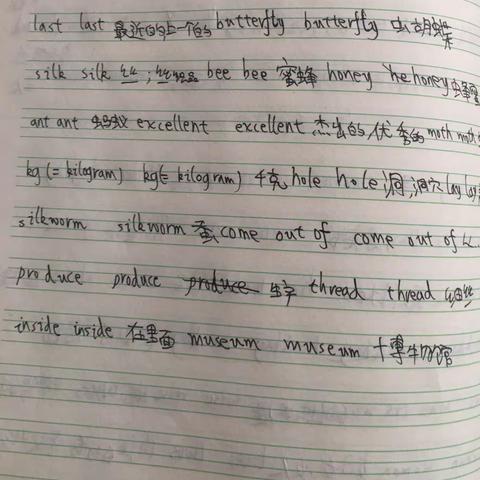 last last 最近的;上一个的 butterfly butterfly 蝴蝶
silk silk 丝;丝绸 bee bee 蜜蜂 honey honey 蜂蜜
ant ant 蚂蚁 excellent excellent 杰出的,优秀的 moth moth
kg (= kilogram) kg(= kilogram) 千克 hole hole 洞,洞穴 lay lay
silkworm silkworm 蚕 come out of come out of 从
produce produce 生产 thread thread 细丝
inside inside 在里面 museum museum 博物馆